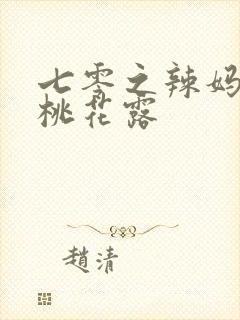 七零之辣妈
桃花露
趙清